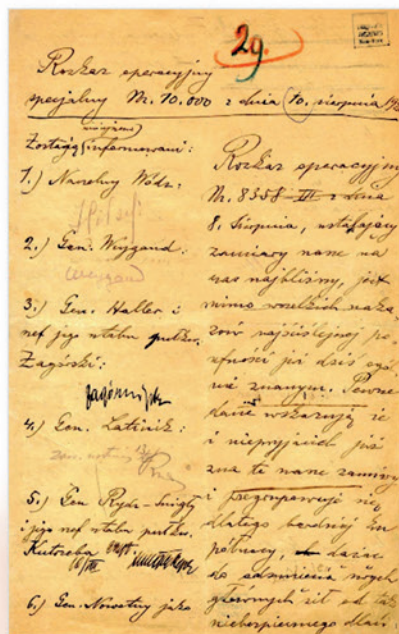 29.
Rozkaz operacyjny
specjalny Nr. 10.000 z dnia 10. sierpnia
Zostają informowani:
1.) Naczelny Wódz:
2.) Gen. Weygand:
Weygand
3.) Gen. Haller i
szef jego sztabu pułkow.
Zagórski:
4.) Gen. Latinik:
5.) Gen Rydz-Śmigły
i jego szef sztabu pułkow.
Kutrzeba
6.) Gen. Nowotny jako
Rozkaz operacyjny
Nr. 8358-III z dnia
8. sierpnia, ustalający
zamiary nasze na
czas najbliższy, jest
mimo wszelkich naka-
zów najściślejszej po-
ufności już dziś ogól-
nie znanym. Pewne
dane wskazują że
i nieprzyjaciel już
zna te nasze zamiary
i przegrupowuje się
dlatego bardziej ku
północy,
do
głównych sił od tak
niebezpiecznego dla